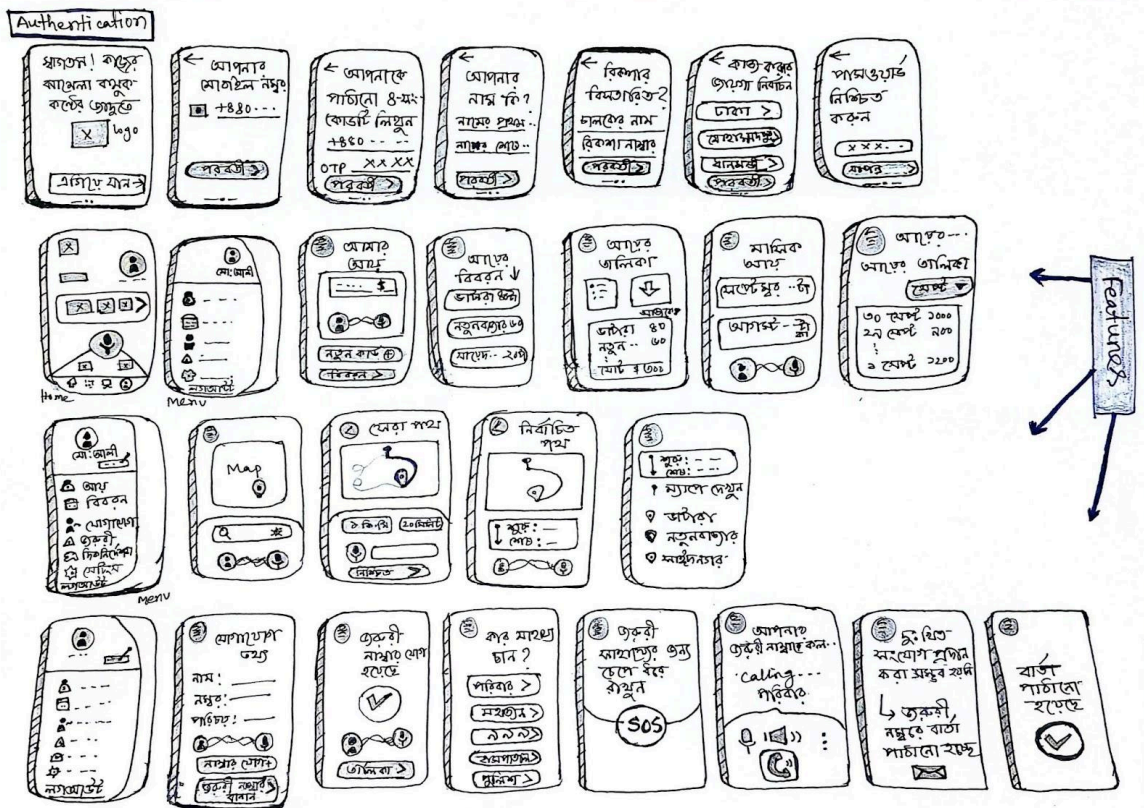 Authentication
স্বাগতম! কন্ঠের
logo
এগিয়ে যান→
← আপনার
মোবাইল নম্বর
+880...
পরবর্তী >
← আপনাকে
পাঠানো
কোডটি লিখুন
+880 - - -
OTP XXXX
পরবর্তী >
← আপনার
নাম কি?
নামের প্রথম ..
নামের শেষ ..
পরবর্তী >
← রিকশার
বিস্তারিত?
চালকের নাম
রিকশা নাম্বার
পরবর্তী >
← কাজ করার
জায়গা নির্বাচন
ঢাকা >
মোহাম্মদপুর
ধানমন্ডি >
পরবর্তী >
← পাসওয়ার্ড
নিশ্চিত
করুন
xxx..
Home
মো: আলী
লগআউট
Menu
আমার
আয়
.... $
নতুন কার্ড +
বিবরন >
আয়ের
বিবরন ↓
ভাটারা
নতুনবাজার ৬০
আয়ের
তালিকা
ভাটারা ৪০
নতুন .. ৬০
মোট
মাসিক
আয়
সেপ্টেম্বর .. টা
আগস্ট - -
আয়ের---
আয়ের তালিকা
সেপ্ট
৩০ সেপ্ট ১০০০
২৯ সেপ্ট ৯০০
১ সেপ্ট ১২০০
Features
মো: আলী
আয়
বিবরন
যোগাযোগ
জরুরী
দিকনির্দেশনা
সেটিংস
লগআউট
Menu
Map
সেরা পথ
৯ কি:মি
২০মিনিট
নিশ্চিত >
নির্বাচিত
পথ
শুরু: —
শেষ: —
শুরু: - - -
শেষ: - - -
ম্যাপে দেখুন
ভাটারা
নতুনবাজার
সাঈদনগর
লগআউট
যোগাযোগ
তথ্য
নাম:
নম্বর:
পরিচয়:
নাম্বার যোগ+
জরুরী নাম্বার
বানান
জরুরী
নাম্বার যোগ
হয়েছে
তালিকা >
কার সাহায্য
চান?
পরিবার >
মহাজন >
৯৯৯ >
হাসপাতাল >
পুলিশ >
জরুরী
সাহায্যের জন্য
চেপে ধরে
রাখুন
SOS
আপনার
জরুরী নাম্বারে কল..
Calling....
পরিবার
দু:খিত
সংযোগ প্রদান
করা সম্ভব হয়নি
↳ জরুরী
নম্বরে বার্তা
পাঠানো হচ্ছে
বার্তা
পাঠানো
হয়েছে